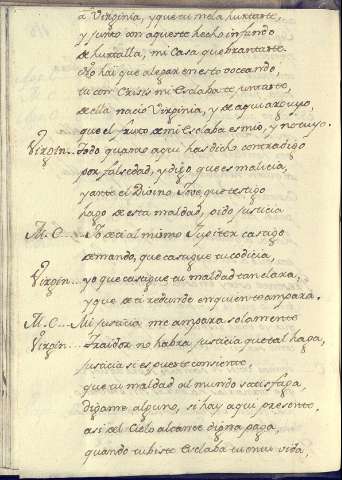 a Virginia, y que tu me la hurtaste,
y junto con aqueste hecho infando
de hurtalla, mi Casa quebrantaste
No hai que alegar en esto voceando,
tu con Crisis mi Esclaba te juntaste,
de ella nacio Virginia, y de aqui arguyo,
que el fruto de mi Esclaba es mio, y no tuyo.
Virgin... Todo quanto aqui has dicho contradigo
por falsedad, y digo que es malicia,
y ante el Divino Jove que testigo
hago de esta maldad, pido justicia
M. C... Io de al mismo Jupiter castigo
demando, que castigue tu codicia,
Virgin... yo que castigue tu maldad tan clara,
y que de ti redunde en quien te ampara.
M. C... Mi justicia me ampara solamente
Virgin... Traidor no habra justicia que tal haga,
justicia si es pues te consiente,
que tu maldad al mundo satisfaga
digame alguno, si hay aqui presente
asi del Cielo alcance digna paga,
quando tubiste Esclaba tu en mi vida,